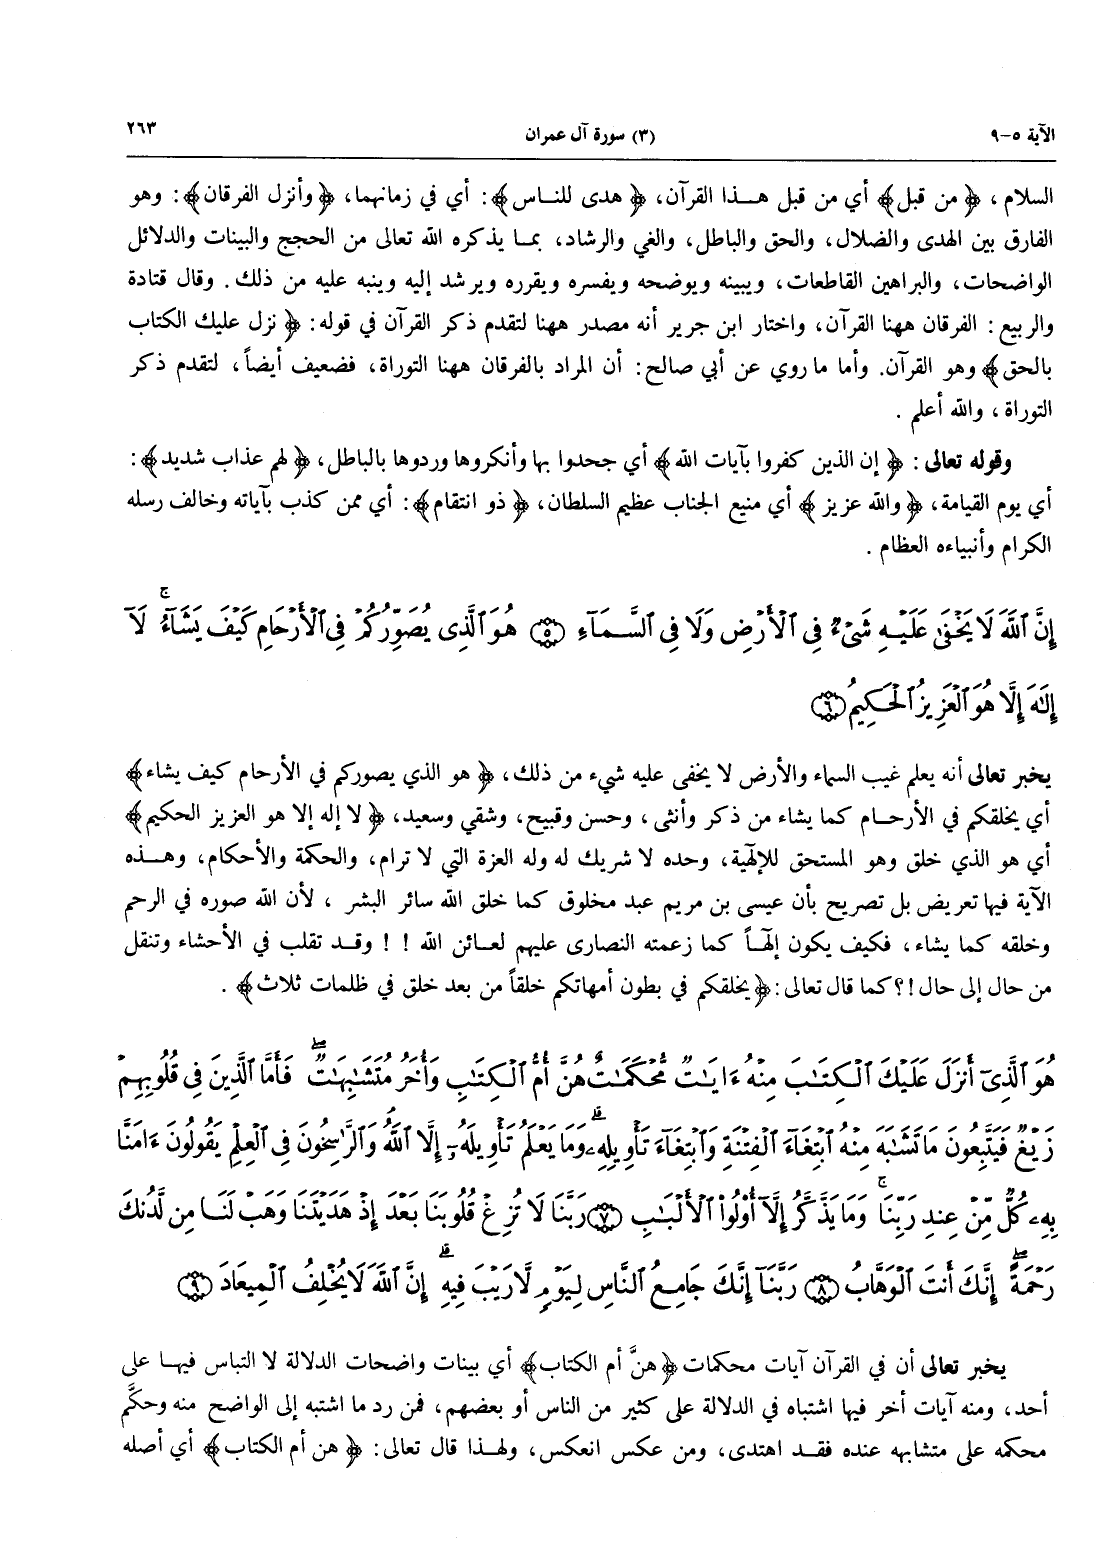 الآية ٥-٩ (٣) سورة آل عمران ٢٦٣
السلام ، ﴿ من قبل ﴾ أي من قبل هذا القرآن، ﴿ هدى للناس ﴾ : أي في زمانهما، ﴿ وأنزل الفرقان ﴾ : وهو
الفارق بين الهدى والضلال، والحق والباطل، والغي والرشاد، بما يذكره الله تعالى من الحجج والبينات والدلائل
الواضحات، والبراهين القاطعات، ويبينه ويوضحه ويفسره ويقرره ويرشد إليه وينبه عليه من ذلك . وقال قتادة
والربيع : الفرقان ههنا القرآن، واختار ابن جرير أنه مصدر ههنا لتقدم ذكر القرآن في قوله : ﴿ نزل عليك الكتاب
بالحق ﴾ وهو القرآن. وأما ما روي عن أبي صالح : أن المراد بالفرقان ههنا التوراة، فضعيف أيضاً، لتقدم ذكر
التوراة ، والله أعلم .
وقوله تعالى : ﴿ إن الذين كفروا بآيات الله ﴾ أي جحدوا بها وأنكروها وردوها بالباطل، ﴿ لهم عذاب شديد ﴾ :
أي يوم القيامة، ﴿ والله عزيز ﴾ أي منيع الجناب عظيم السلطان، ﴿ ذو انتقام ﴾ : أي ممن كذب بآياته وخالف رسله
الكرام وأنبياءه العظام .
إِنَّ ٱللَّهَ لَا يَخْفَىٰ عَلَيْهِ شَىْءٌ فِى ٱلْأَرْضِ وَلَا فِى ٱلسَّمَآءِ ۝٥ هُوَ ٱلَّذِى يُصَوِّرُكُمْ فِى ٱلْأَرْحَامِ كَيْفَ يَشَآءُ ۚ لَآ
إِلَٰهَ إِلَّا هُوَ ٱلْعَزِيزُ ٱلْحَكِيمُ ۝٦
يخبر تعالى أنه يعلم غيب السماء والأرض لا يخفى عليه شيء من ذلك، ﴿ هو الذي يصوركم في الأرحام كيف يشاء ﴾
أي يخلقكم في الأرحام كما يشاء من ذكر وأنثى ، وحسن وقبيح، وشقي وسعيد، ﴿ لا إله إلا هو العزيز الحكيم ﴾
أي هو الذي خلق وهو المستحق للإلهية، وحده لا شريك له وله العزة التي لا ترام، والحكمة والأحكام، وهذه
الآية فيها تعريض بل تصريح بأن عيسى بن مريم عبد مخلوق كما خلق الله سائر البشر ، لأن الله صوره في الرحم
وخلقه كما يشاء، فكيف يكون إلهاً كما زعمته النصارى عليهم لعائن الله ! ! وقد تقلب في الأحشاء وتنقل
من حال إلى حال !؟ كما قال تعالى : ﴿ يخلقكم في بطون أمهاتكم خلقاً من بعد خلق في ظلمات ثلاث ﴾ .
هُوَ ٱلَّذِىٓ أَنزَلَ عَلَيْكَ ٱلْكِتَٰبَ مِنْهُ ءَايَٰتٌ مُّحْكَمَٰتٌ هُنَّ أُمُّ ٱلْكِتَٰبِ وَأُخَرُ مُتَشَٰبِهَٰتٌ ۖ فَأَمَّا ٱلَّذِينَ فِى قُلُوبِهِمْ
زَيْغٌ فَيَتَّبِعُونَ مَا تَشَٰبَهَ مِنْهُ ٱبْتِغَآءَ ٱلْفِتْنَةِ وَٱبْتِغَآءَ تَأْوِيلِهِۦ ۗ وَمَا يَعْلَمُ تَأْوِيلَهُۥٓ إِلَّا ٱللَّهُ ۗ وَٱلرَّٰسِخُونَ فِى ٱلْعِلْمِ يَقُولُونَ ءَامَنَّا
بِهِۦ كُلٌّ مِّنْ عِندِ رَبِّنَا ۗ وَمَا يَذَّكَّرُ إِلَّآ أُو۟لُوا۟ ٱلْأَلْبَٰبِ ۝٧ رَبَّنَا لَا تُزِغْ قُلُوبَنَا بَعْدَ إِذْ هَدَيْتَنَا وَهَبْ لَنَا مِن لَّدُنكَ
رَحْمَةً ۚ إِنَّكَ أَنتَ ٱلْوَهَّابُ ۝٨ رَبَّنَآ إِنَّكَ جَامِعُ ٱلنَّاسِ لِيَوْمٍ لَّا رَيْبَ فِيهِ ۚ إِنَّ ٱللَّهَ لَا يُخْلِفُ ٱلْمِيعَادَ ۝٩
يخبر تعالى أن في القرآن آيات محكمات ﴿ هنَّ أم الكتاب ﴾ أي بينات واضحات الدلالة لا التباس فيها على
أحد، ومنه آيات أخر فيها اشتباه في الدلالة على كثير من الناس أو بعضهم، فمن رد ما اشتبه إلى الواضح منه وحكَّم
محكمه على متشابهه عنده فقد اهتدى، ومن عكس انعكس، ولهذا قال تعالى : ﴿ هن أم الكتاب ﴾ أي أصله